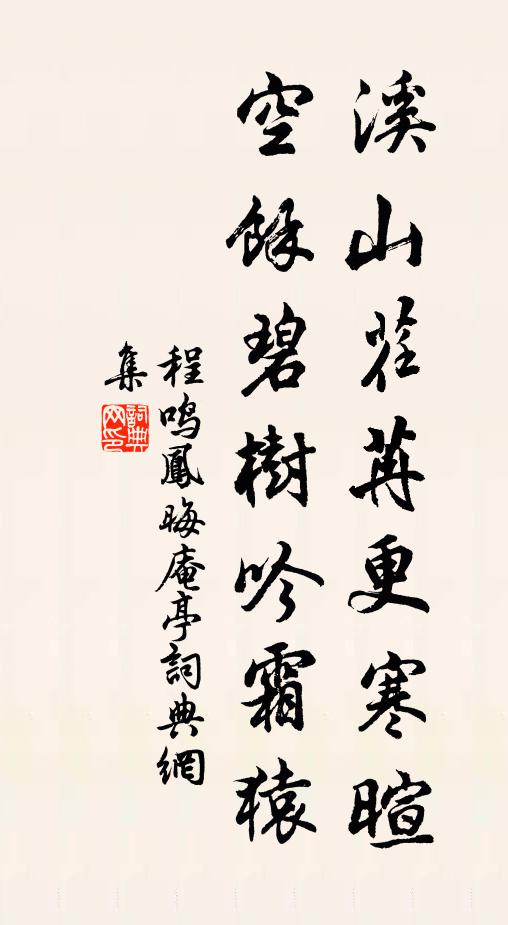 溪山荏苒更寒暄
空餘碧樹吟霜猿
程鳴鳳晦庵亭詞典網
集
詞典
网印